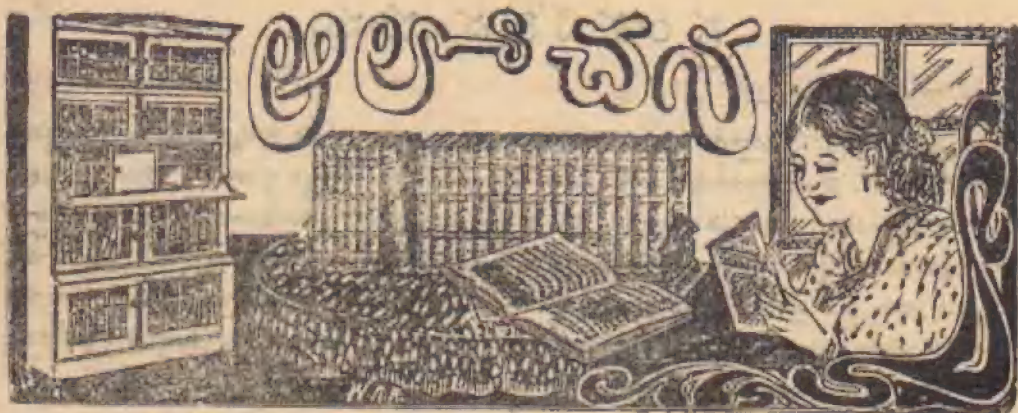 ఆలోచన